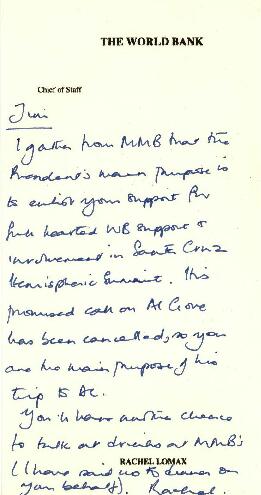 THE WORLD BANK
Chief of Staff
Jim
I gather from MMB that the
President's main purpose is
to enlist your support for
full hearted WB support &
involvement in Santa Cruz
Hemispheric Summit. His
promised call on Al Gore
has been cancelled, so you
are the main purpose of his
trip to DC.
You'll have another chance
to talk at drinks at MMB's
(I have said no to dinner on
RACHEL LOMAX
your behalf). Rachel.